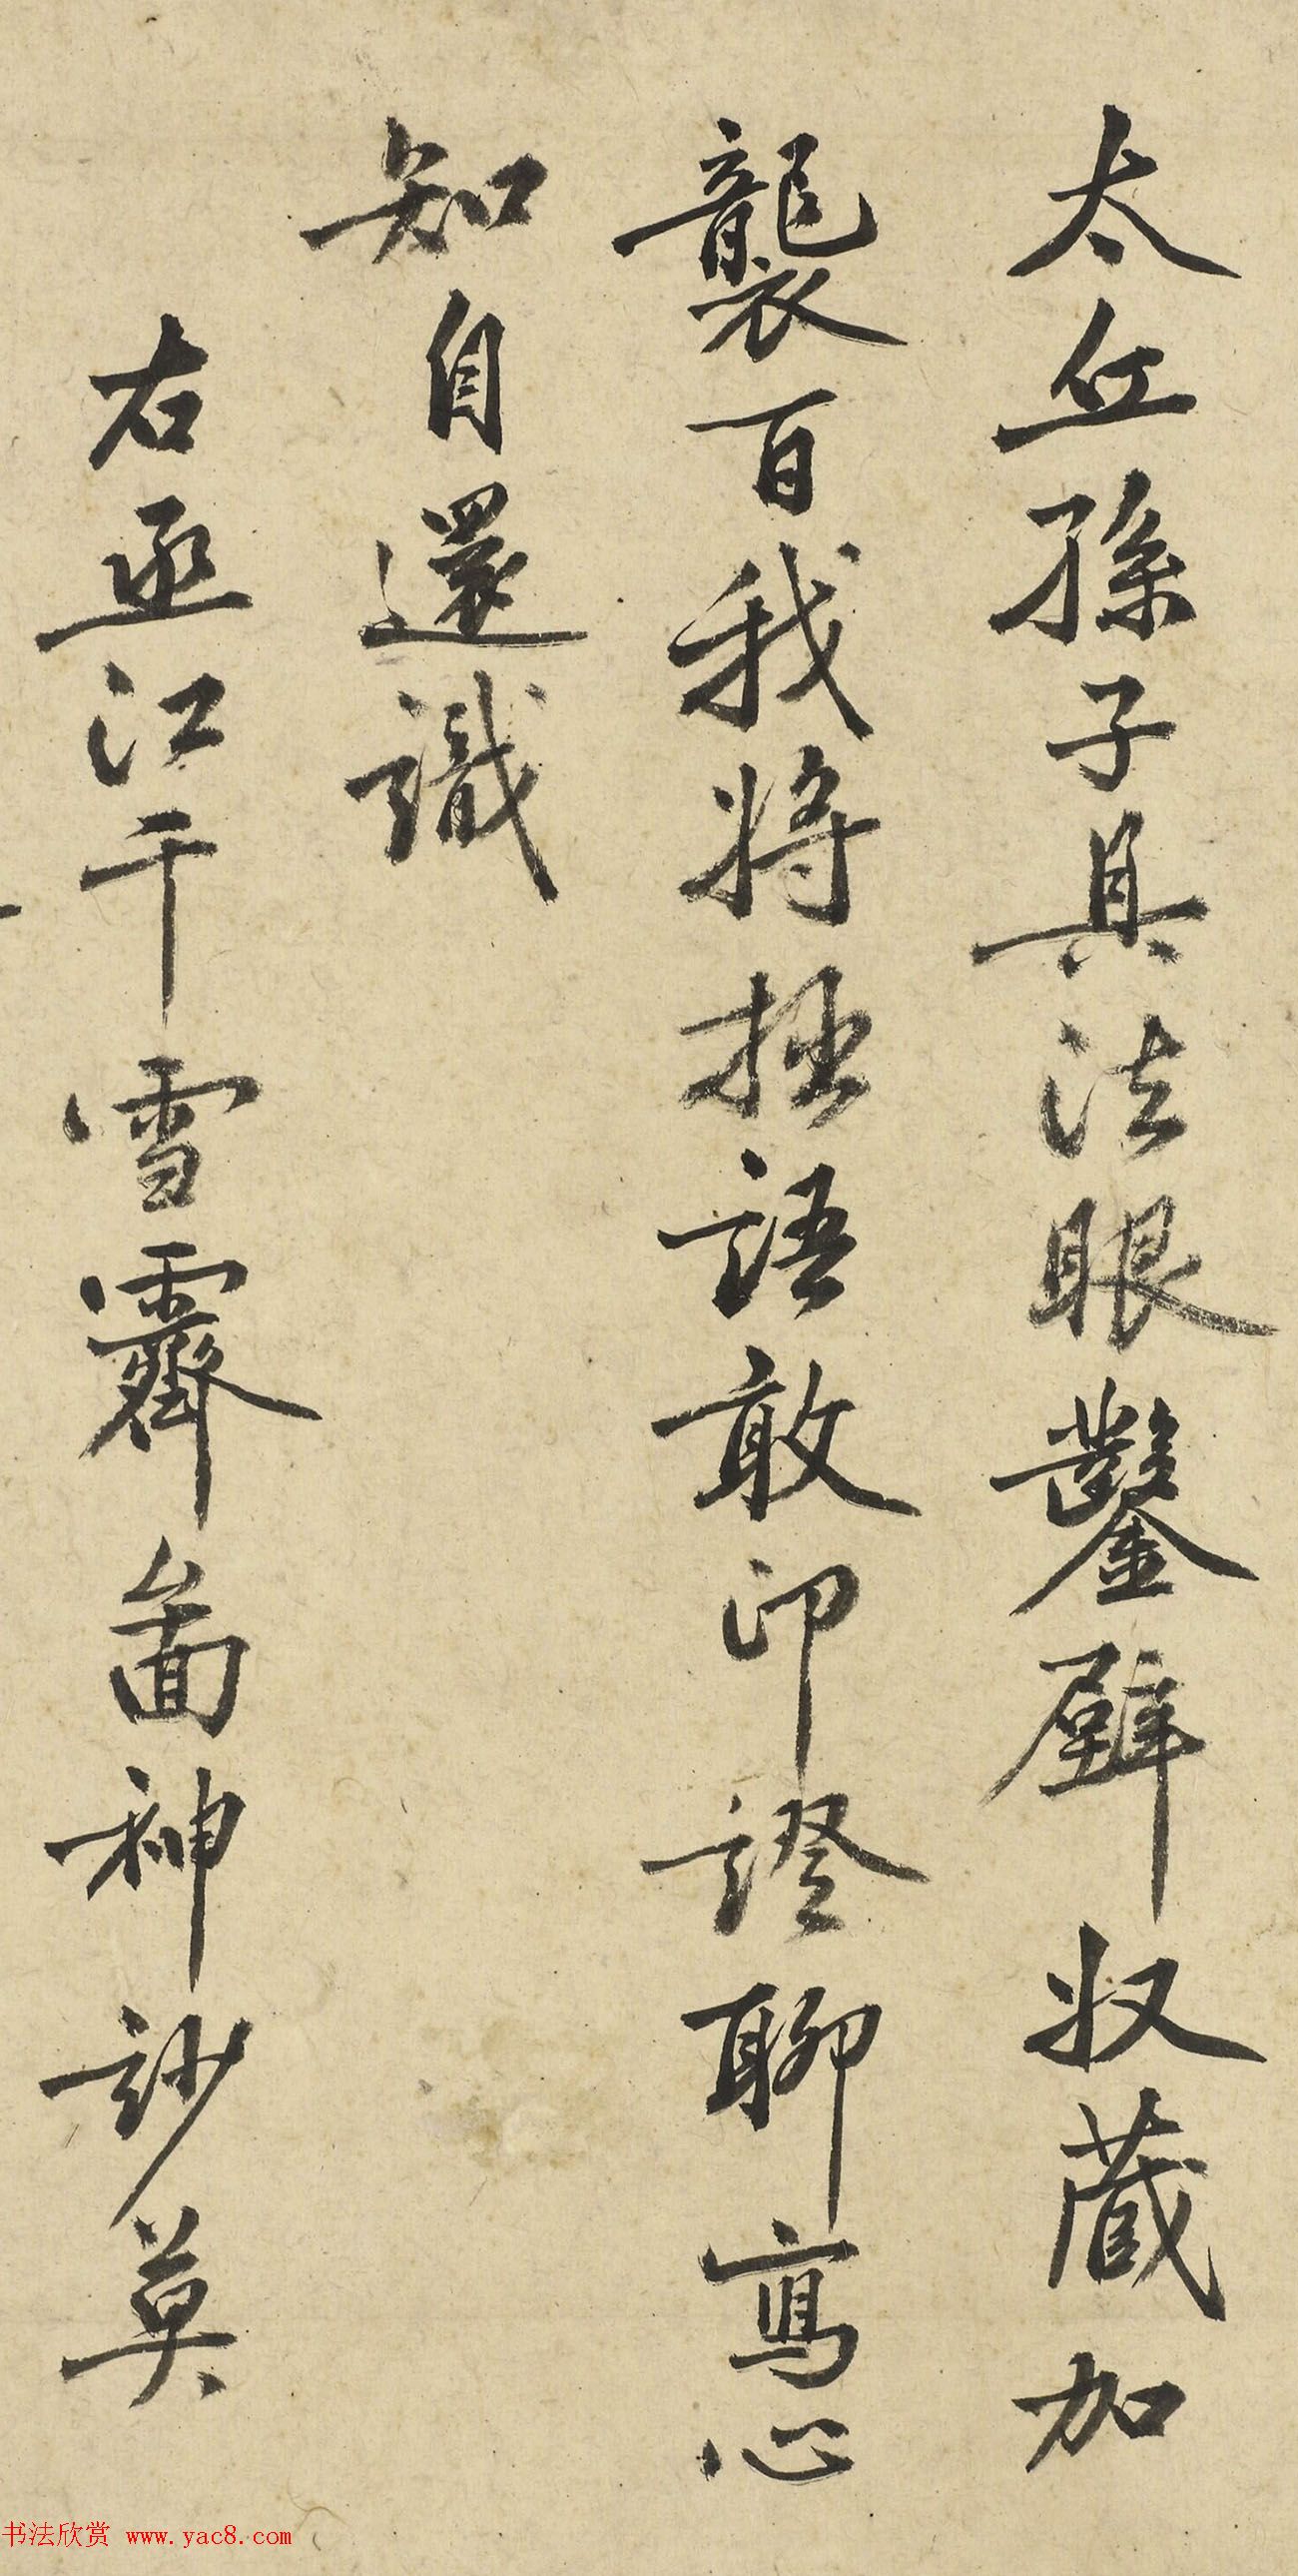 太丘孫子具法眼鑿壁収蔵加
襲百我將拙語敢印證聊寫心
知自還識
右丞江干雪霽啚神玅莫
书法欣赏 www.yac8.com